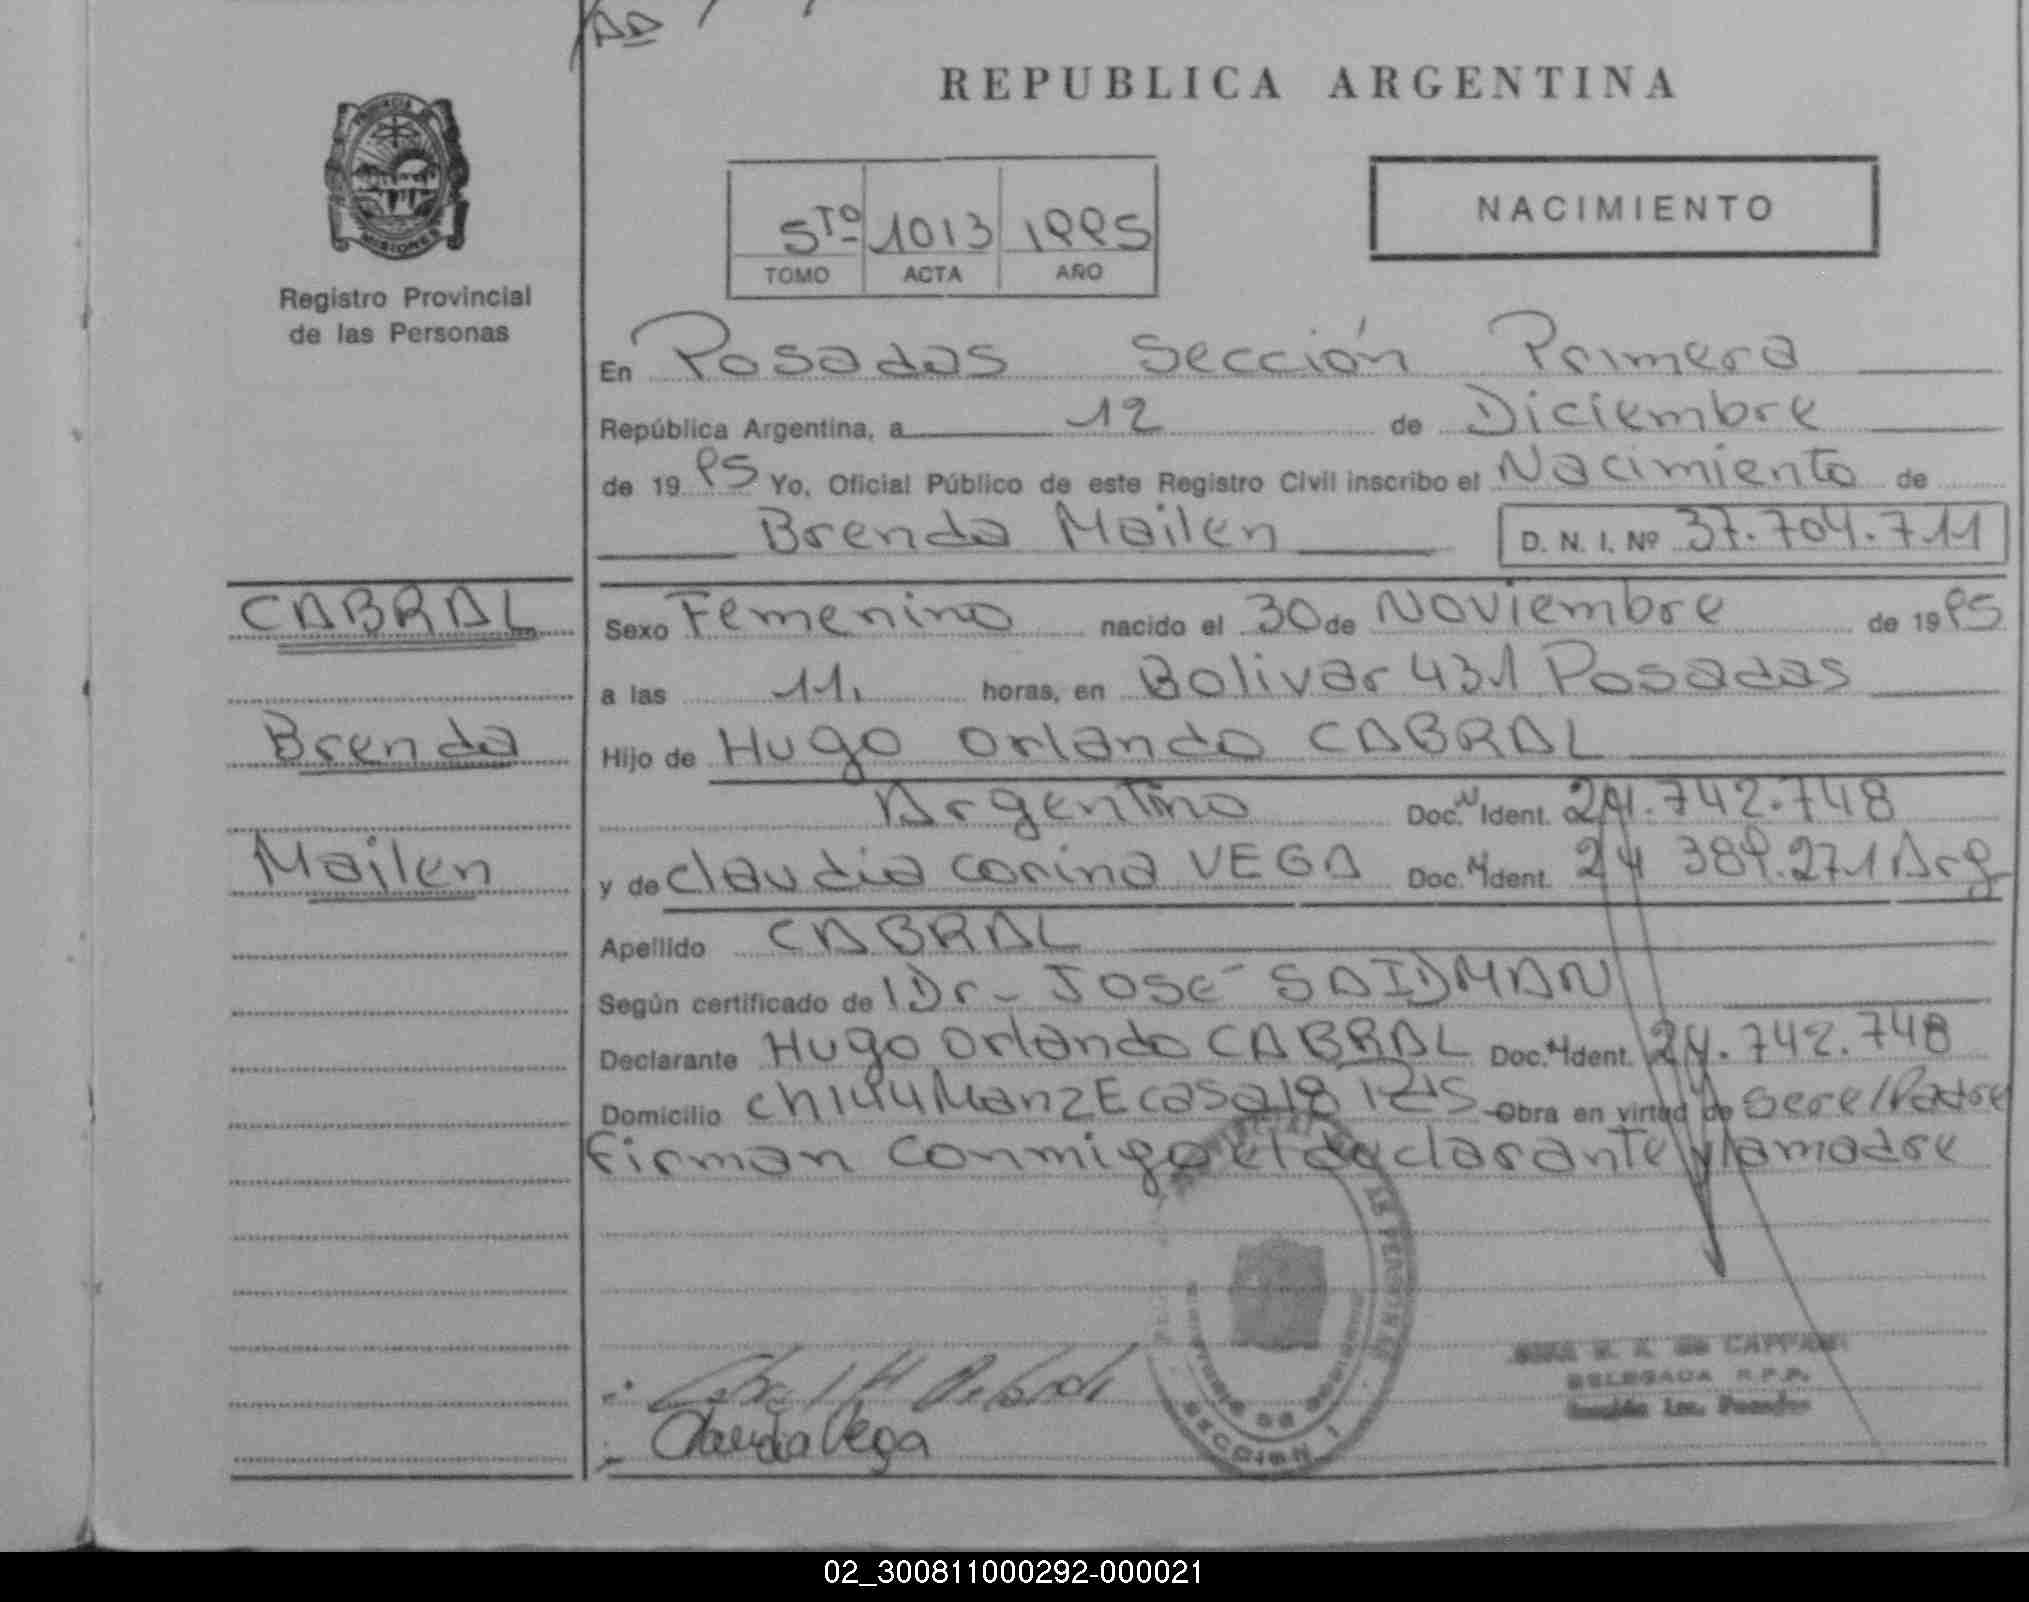 REPUBLICA ARGENTINA
PROVINCIA
MISIONES
Registro Provincial
de las Personas
5to 1013 1995
TOMO ACTA AÑO
NACIMIENTO
En Posadas Sección Primera
República Argentina, a 12 de Diciembre
de 19 95 Yo, Oficial Público de este Registro Civil inscribo el Nacimiento de
Brenda Mailen D. N. I. Nº 37.704.711
CABRAL
Brenda
Mailen
Sexo Femenino nacido el 30 de Noviembre de 19 95
a las 11. horas, en Bolivar 431 Posadas
Hijo de Hugo Orlando CABRAL
Argentino Doc. N Ident. 24.742.748
y de Claudia Corina VEGA Doc. N Ident. 24 389.271 Arg
Apellido CABRAL
Según certificado de Dr- José SAIDMAN
Declarante Hugo Orlando CABRAL Doc. N Ident. 24.742.748
Domicilio Ch 144 Manz E casa 18 Obra en virtud de Sere/Padre
Firman conmigo el declarante y la madre
Claudia Vega
SECCION 1
DELEGADA R.P.P.
02_300811000292-000021